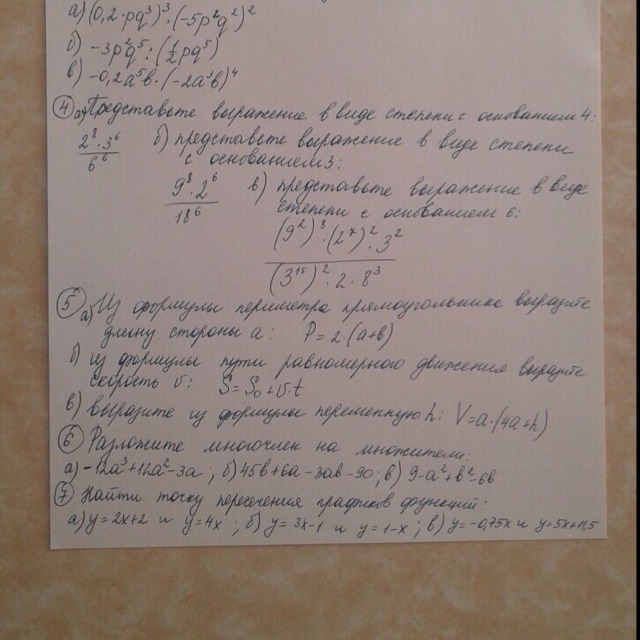 а) (0,2·pq³)³·(-5p²q²)²
б) -3p²q⁵:(½pq⁵)
в) -0,2a⁵b·(-2a³b)⁴
④ а) Представьте выражение в виде степени с основанием 4:
2⁸·3⁶ / 6⁶ б) представьте выражение в виде степени
с основанием 3:
9⁸·2⁶ / 18⁶ в) представьте выражение в виде
степени с основанием 6:
(9²)⁸·(2⁷)²·3² / (3¹⁵)²·2·8³
⑤ а) Из формулы периметра прямоугольника выразите
длину стороны a: P=2·(a+b)
б) из формулы пути равномерного движения выразите
скорость v: S=S₀+v·t
в) выразите из формулы переменную h: V=a·(4a+h)
⑥ Разложите многочлен на множители:
а) -12a³+12a²-3a; б) 45b+6a-3ab-90; в) 9-a²+b²-6b
⑦ Найти точку пересечения графиков функций:
а) y=2x+2 и y=4x; б) y=3x-1 и y=1-x; в) y=-0,75x и y=5x+11,5